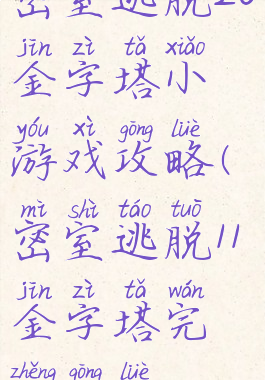 密室逃脱20
jīn zì tǎ xiǎo
金字塔小
yóu xì gōng lüè
游戏攻略(
mì shì táo tuō
密室逃脱11
jīn zì tǎ wán
金字塔完
zhěng gōng lüè